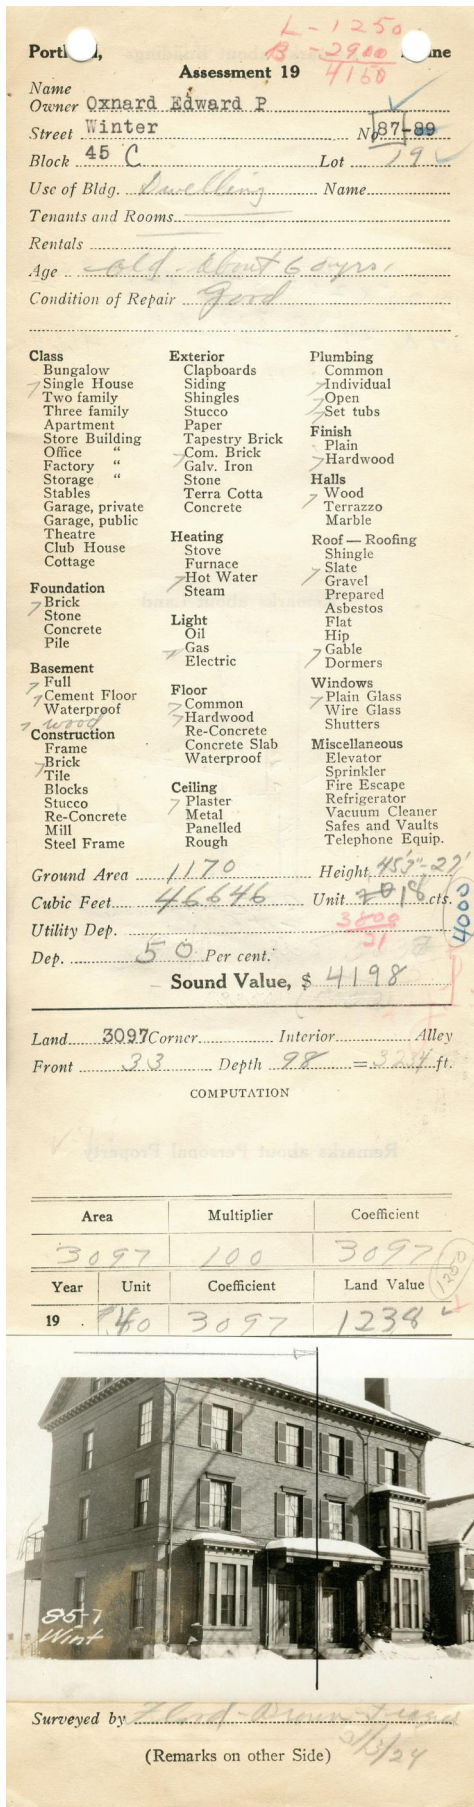 L - 1250
B - 2900
4150
Portland, Maine
Assessment 19
Name
Owner Oxnard Edward P
Street Winter No 87-89
Block 45 C Lot 19
Use of Bldg. Dwelling Name
Tenants and Rooms
Rentals
Age old - About 60 yrs.
Condition of Repair Good
Class
Bungalow
Single House
Two family
Three family
Apartment
Store Building
Office "
Factory "
Storage "
Stables
Garage, private
Garage, public
Theatre
Club House
Cottage
Foundation
Brick
Stone
Concrete
Pile
Basement
Full
Cement Floor
Waterproof
wood
Construction
Frame
Brick
Tile
Blocks
Stucco
Re-Concrete
Mill
Steel Frame
Exterior
Clapboards
Siding
Shingles
Stucco
Paper
Tapestry Brick
Com. Brick
Galv. Iron
Stone
Terra Cotta
Concrete
Heating
Stove
Furnace
Hot Water
Steam
Light
Oil
Gas
Electric
Floor
Common
Hardwood
Re-Concrete
Concrete Slab
Waterproof
Ceiling
Plaster
Metal
Panelled
Rough
Plumbing
Common
Individual
Open
Set tubs
Finish
Plain
Hardwood
Halls
Wood
Terrazzo
Marble
Roof — Roofing
Shingle
Slate
Gravel
Prepared
Asbestos
Flat
Hip
Gable
Dormers
Windows
Plain Glass
Wire Glass
Shutters
Miscellaneous
Elevator
Sprinkler
Fire Escape
Refrigerator
Vacuum Cleaner
Safes and Vaults
Telephone Equip.
Ground Area 1170 Height 45'3"-22'
Cubic Feet 46646 Unit 18 cts.
4000
Utility Dep. 3800
31
Dep. 50 Per cent.
Sound Value, $ 4198
Land 3097 Corner Interior Alley
Front 33 Depth 98 = 3234 ft.
COMPUTATION
Area Multiplier Coefficient
3097 100 3097
1250
Year Unit Coefficient Land Value
19 40 3097 1238
85-7
Wint
Surveyed by
(Remarks on other Side)